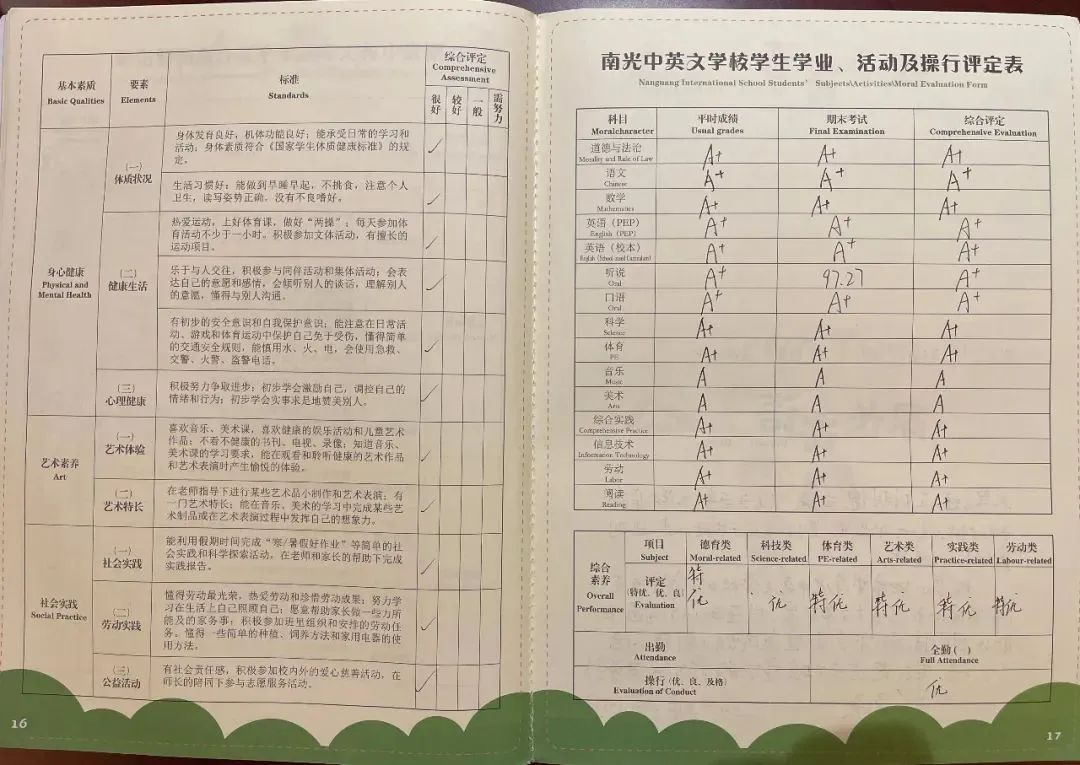 基本素质
Basic Qualities
要素
Elements
标准
Standards
综合评定
Comprehensive
Assessment
很好
较好
一般
需努力
身心健康
Physical and
Mental Health
(一)
体质状况
身体发育良好;机体功能良好;能承受日常的学习和
活动;身体素质符合《国家学生体质健康标准》的规
定。
✓
生活习惯好;能做到早睡早起,不挑食,注意个人
卫生,读写姿势正确,没有不良嗜好。
✓
(二)
健康生活
热爱运动,上好体育课,做好“两操”;每天参加体
育活动不少于一小时。积极参加文体活动,有擅长的
运动项目。
✓
乐于与人交往,积极参与同伴活动和集体活动;会表
达自己的意愿和感情,会倾听别人的谈话,理解别人
的意愿,懂得与别人沟通。
✓
有初步的安全意识和自我保护意识;能注意在日常活
动、游戏和体育运动中保护自己免于受伤,懂得简单
的交通安全规则,能慎用水、火、电,会使用急救、
交警、火警、盗警电话。
✓
(三)
心理健康
积极努力争取进步;初步学会激励自己,调控自己的
情绪和行为;初步学会实事求是地赞美别人。
✓
艺术素养
Art
(一)
艺术体验
喜欢音乐、美术课,喜欢健康的娱乐活动和儿童艺术
作品;不看不健康的书刊、电视、录像;知道音乐、
美术课的学习要求,能在观看和聆听健康的艺术作品
和艺术表演时产生愉悦的体验。
✓
(二)
艺术特长
在老师指导下进行某些艺术品小制作和艺术表演;有
一门艺术特长;能在音乐、美术的学习中完成某些艺
术制品或在艺术表演过程中发挥自己的想象力。
✓
社会实践
Social Practice
(一)
社会实践
能利用假期时间完成“寒/暑假好作业”等简单的社
会实践和科学探索活动,在老师和家长的帮助下完成
实践报告。
✓
(二)
劳动实践
懂得劳动最光荣,热爱劳动和珍惜劳动成果;努力学
习在生活上自己照顾自己;愿意帮助家长做一些力所
能及的家务事;积极参加班里组织和安排的劳动任
务。懂得一些简单的种植、饲养方法和家用电器的使
用方法。
✓
(三)
公益活动
有社会责任感,积极参加校内外的爱心慈善活动,在
师长的陪同下参与志愿服务活动。
✓
16
南光中英文学校学生学业、活动及操行评定表
Nanguang International School Students' Subjects\Activities\Moral Evaluation Form
科目
Moralcharacter
平时成绩
Usual grades
期末考试
Final Examination
综合评定
Comprehensive Evaluation
道德与法治
Morality and Rule of Law
A+ A+ A+
语文
Chinese
A+ A+ A+
数学
Mathematics
A+ A+ A+
英语(PEP)
English (PEP)
A+ A+ A+
英语(校本)
English (School-based Curriculum)
A+ A+ A+
听说
Oral
A+ 97.27 A+
口语
Oral
A+ A+ A+
科学
Science
A+ A+ A+
体育
PE
A+ A+ A+
音乐
Music
A A A
美术
Arts
A A A
综合实践
Comprehensive Practice
A+ A+ A+
信息技术
Information Technology
A+ A+ A+
劳动
Labor
A+ A+ A+
阅读
Reading
A+ A+ A+
综合
素养
Overall
Performance
项目
Subject
德育类
Moral-related
科技类
Science-related
体育类
PE-related
艺术类
Arts-related
实践类
Practice-related
劳动类
Labour-related
评定
(特优、优、良)
Evaluation
特优 优 特优 特优 特优 特优
出勤
Attendance
全勤(一)
Full Attendance
操行(优、良、及格)
Evaluation of Conduct
优
17